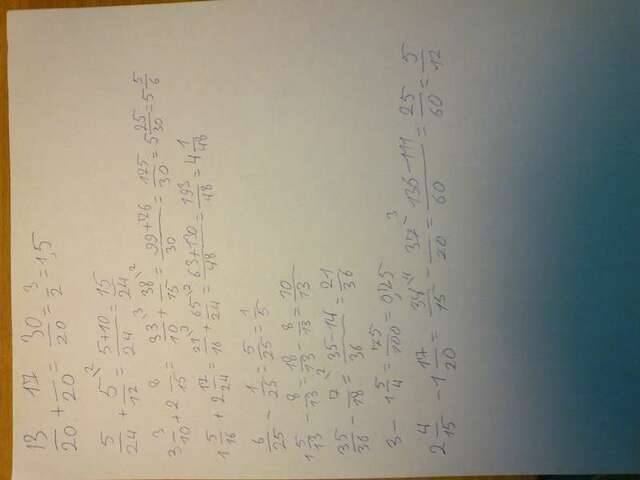 13/20 + 17/20 = 30/20 = 3/2 = 1,5
5/24 + 5/12 = 5+10/24 = 15/24
3 3/10 + 2 8/15 = 33/10 + 38/15 = 99+76/30 = 125/30 = 5 25/30 = 5 5/6
1 5/16 + 2 17/24 = 21/16 + 65/24 = 63+130/48 = 193/48 = 4 1/48
6/25 - 1/25 = 5/25 = 1/5
1 5/13 - 8/13 = 18/13 - 8/13 = 10/13
35/36 - 7/18 = 35-14/36 = 21/36
3 - 1 5/4 = 75/100 = 0,75
2 4/15 - 1 17/20 = 34/15 - 37/20 = 136-111/60 = 25/60 = 5/12